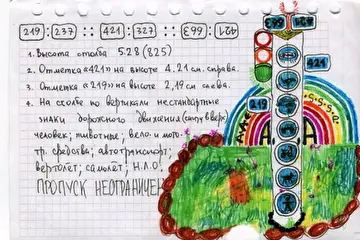 219 : 237 :: 421 : 327 :: 663 : 421
663 421
1. Высота столба 528 (825)
2. Отметка «421» на высоте 4.21 см. справа.
421
3. Отметка «219» на высоте 2,19 см слева.
219
4. На столбе по вертикали нестандартные
знаки дорожного движения (снизу вверх)
человек; животные; вело. и мото.
тр. средства; автотранспорт;
вертолет; самолёт; Н.Л.О.
ПРОПУСК НЕОГРАНИЧЕН